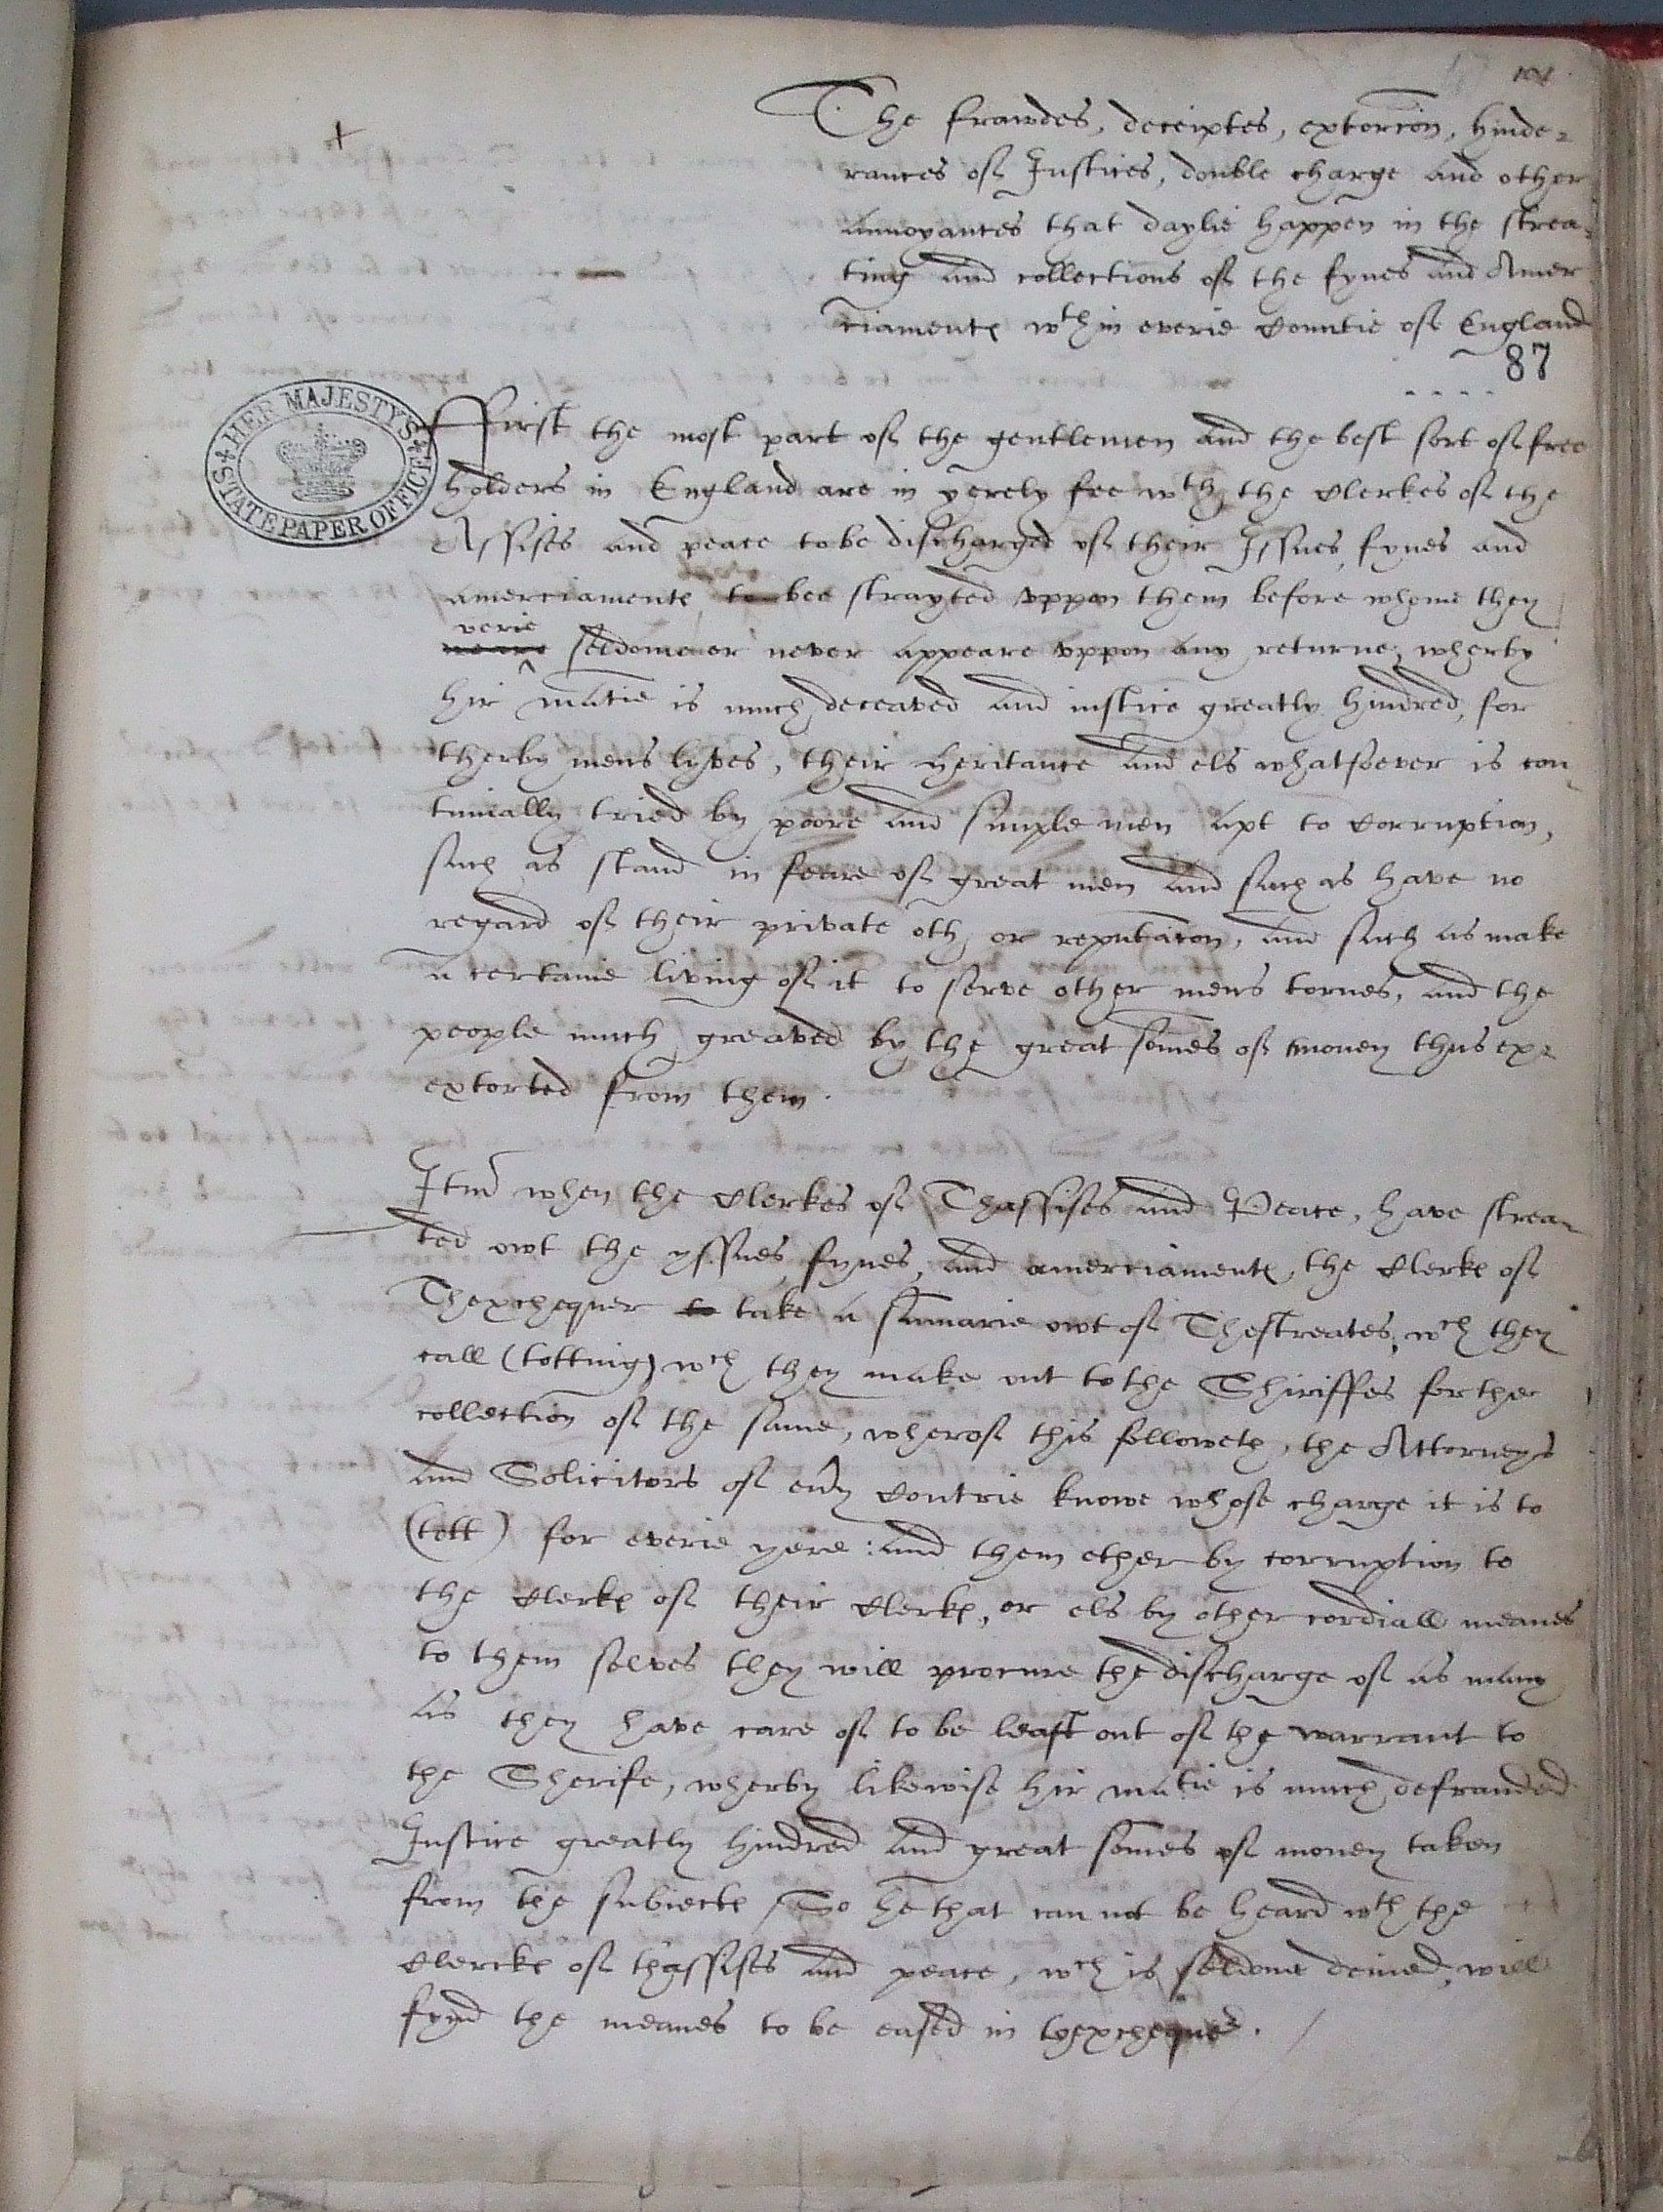 101
The frawdes, deceiptes, extorcion, hinde-
rances of Justices, double charge and other
annoyances that daylie happen in the strea-
ting and collections of the fynes and Amer
ciamentes wth in everie Countie of England
87
HER MAJESTY'S STATE PAPER OFFICE
First the most part of the gentlemen and the best sort of free
holders in England are in yerely fee wth the Clerkes of the
Assises and peace to be discharged of their Issues, fynes and
amerciamentes to bee strayted vppon them before whome they
verie
seldome or never appeare vppon any returne, wherby
hir matie is much deceaved and iustice greatly hindred, for
therby mens lyves, their heritance and els whatsoever is con-
tinually tried by poore and simple men apt to Corruption,
such as stand in feare of great men and such as have no
regard of their private oth or reputacon, and such as make
a certaine living of it to serve other mens tornes, and the
people much greaved by the great somes of money thus ex-
extorted from them.
Itm when the Clerkes of Thassises and Peace, have strea-
ted owt the yssues, fynes, and amerciamentes, the Clerkes of
Thexchequer to take a sumarie owt of Thestreates, wch they
call (totting) wch they make out to the Shiriffes for the
collection of the same, wherof this followeth, the Attorneys
and Solicitors of euy Contrie knowe whose charge it is to
(tott) for everie yere: and them ether by corruption to
the Clerkes of their Clerkes, or els by other cordiall meanes
to them selves they will procure the discharge of as many
as they have care of to be leaft out of the warrant to
the Sherife, wherby likewise hir matie is much defrauded
Justice greatly hindred and great somes of money taken
from the subiectes / So he that can not be heard wth the
Clerckes of thassises and peace, wch is seldome denied, will
fynd the meanes to be eased in thexchequer. /